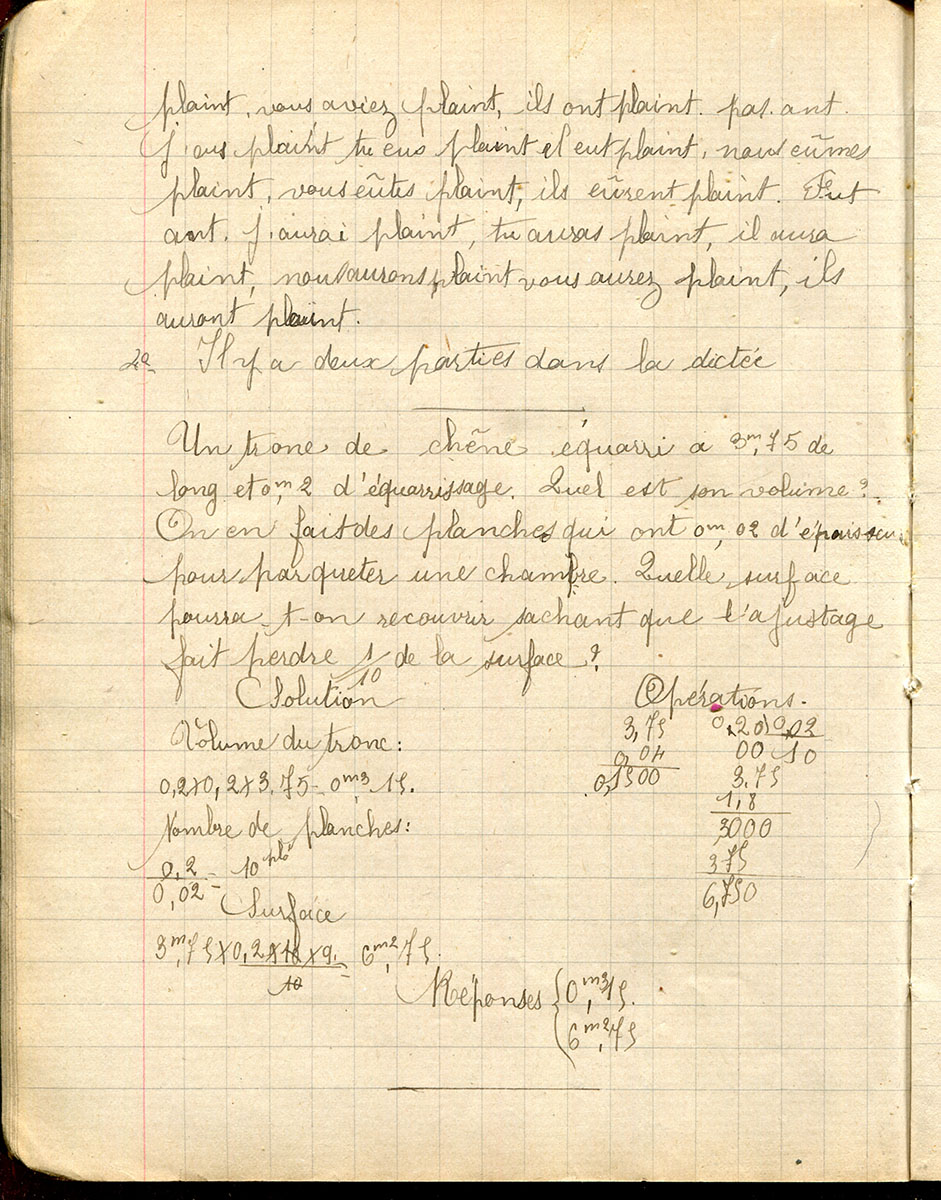 plaint, vous aviez plaint, ils ont plaint. pas. ant.
J'eus plaint tu eus plaint il eut plaint, nous eûmes
plaint, vous eûtes plaint, ils eûrent plaint. Fut
ant. J'aurai plaint, tu auras plaint, il aura
plaint, nous aurons plaint vous aurez plaint, ils
auront plaint.
2º Il y a deux parties dans la dictée
Un tronc de chêne équarri a 3m,75 de
long et 0m,2 d'équarrissage. Quel est son volume?
On en fait des planches qui ont 0m,02 d'épaisseur
pour parqueter une chambre. Quelle surface
pourra-t-on recouvrir sachant que l'ajustage
fait perdre 1/10 de la surface?
Solution
Volume du tronc:
0,2×0,2×3,75=0m3,15.
Nombre de planches:
0,2/0,02 = 10 plⁿ
Surface
3m,75×0,2×10×9/10 = 6m2,75.
Opérations.
3,75 0,20 0,02
0,04 00 10
0,1500 3,75
1,8
3000
375
6,750
Réponses { 0m3,15.
6m2,75